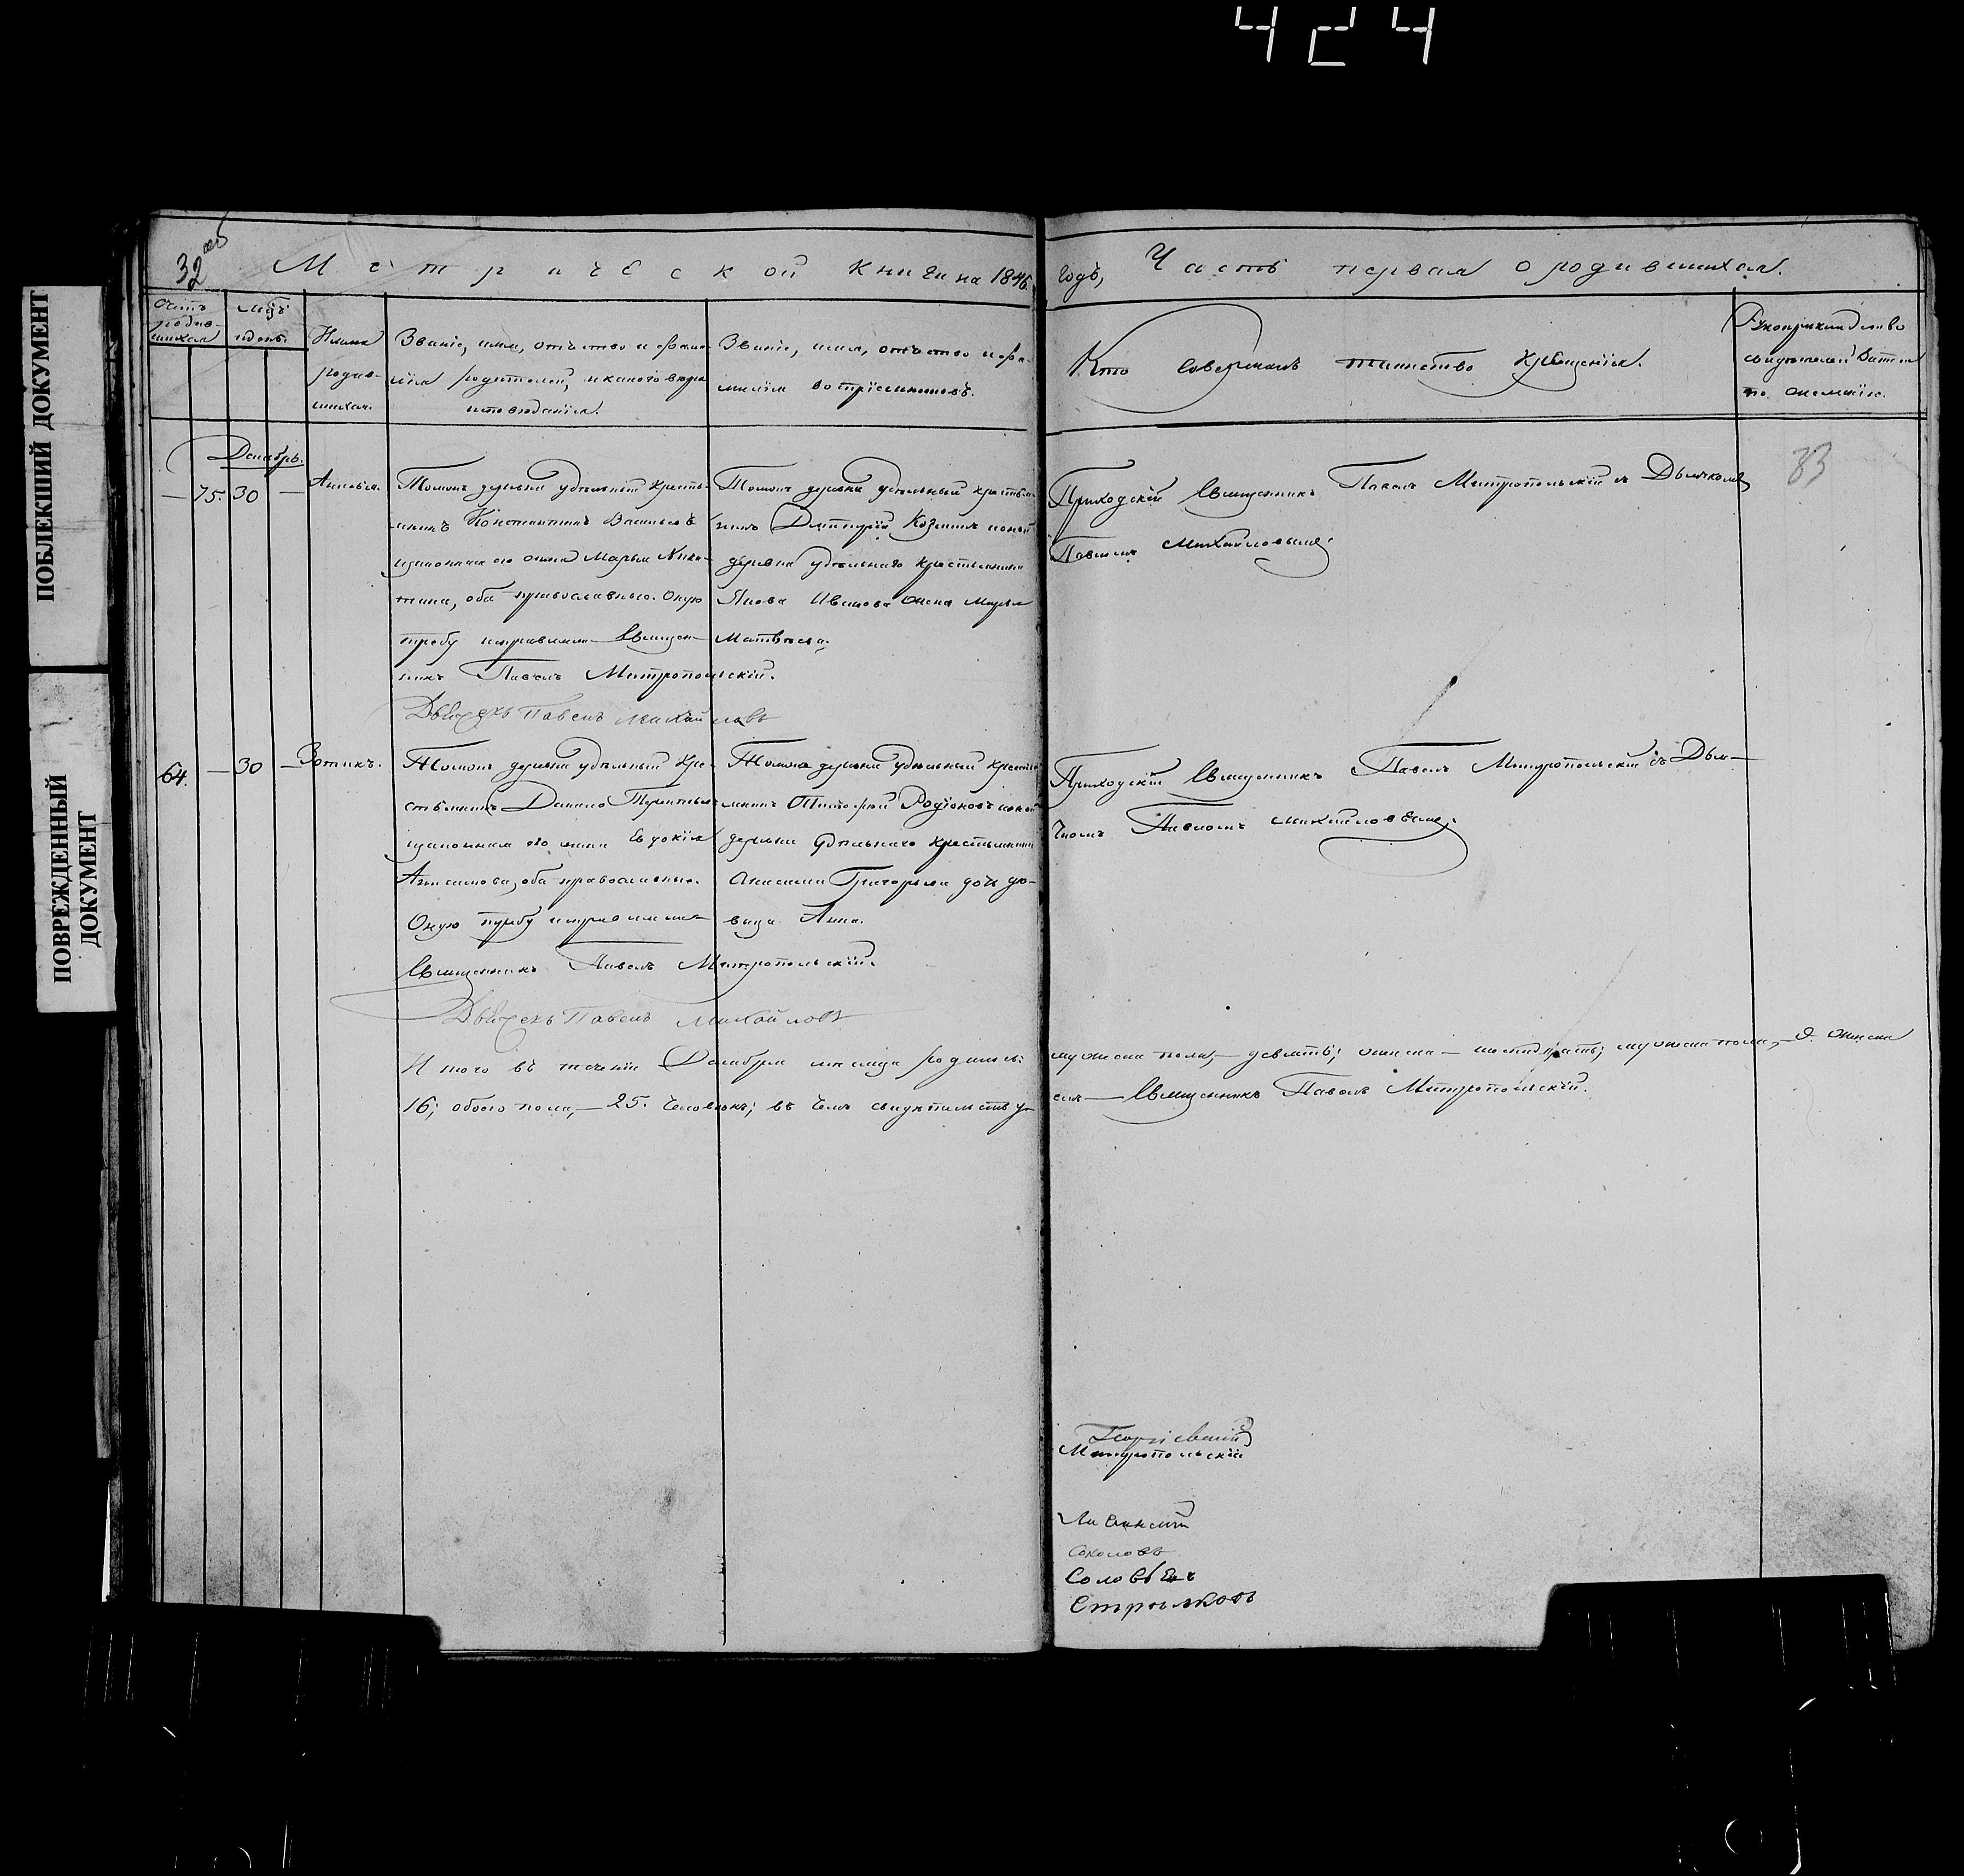 424
ПОБЛЕКШИЙ ДОКУМЕНТ
ПОВРЕЖДЕННЫЙ
ДОКУМЕНТ
32 об
Метрической книги на 1846 годъ, Часть первая о родившихся.
Счетъ родив-шихся
мцъ и день.
Имена
родив-
шихся.
Званіе, имя, отчество и фами-
лія родителей, и какого веро
исповѣданія.
Званіе, имя, отчество и фа-
милія воспріемниковъ.
Кто совершалъ таинство крещенія.
Рукоприкладство
свидѣтелей записи
по желанію.
83
Декабрь.
— 75. 30 —
Томожъ деревни удѣльный кресть-
янинъ Константинъ Васильевъ
законная его жена Марья Ники-
тина, оба православные. Оную
требу исправляли Священ-
никъ Павелъ Митропольскій.
Дьячекъ Павелъ Михайловъ
Томожъ деревни удѣльный крестья
нинъ Дмитрій Козминъ
деревни удѣльнаго крестьянина
Якова Иванова жена Марья
Матвѣева.
Приходскій Священникъ Павелъ Митропольскій съ Дьячкомъ
Павломъ Михайловымъ.
64. — 30 — Зотикъ.
Томожъ деревни удѣльный кре-
стьянинъ Данило Терентьевъ
законная его жена Евдокія
оба православные.
Оную требу исправляли
Священникъ Павелъ Митропольскій.
Дьячекъ Павелъ Михайловъ
Томожъ деревни удѣльный крестья
янинъ Тимофей Родіоновъ
деревни удѣльнаго крестьянина
Григорьева дочь дѣ-
вица Анна.
Приходскій Священникъ Павелъ Митропольскій съ Дья-
чкомъ Павломъ Михайловымъ.
Итого въ теченіи Декабря мѣсяца родилось: мужеска пола, — девять; женска — шестнадцать; мужеска пола, — 9. женска
16; обоего пола, — 25. человѣкъ; въ чемъ свидѣтельству-емъ — Священникъ Павелъ Митропольскій.
Георгіевскій
Митропольскій
Соколовъ
Соловьевъ
Стрѣлковъ